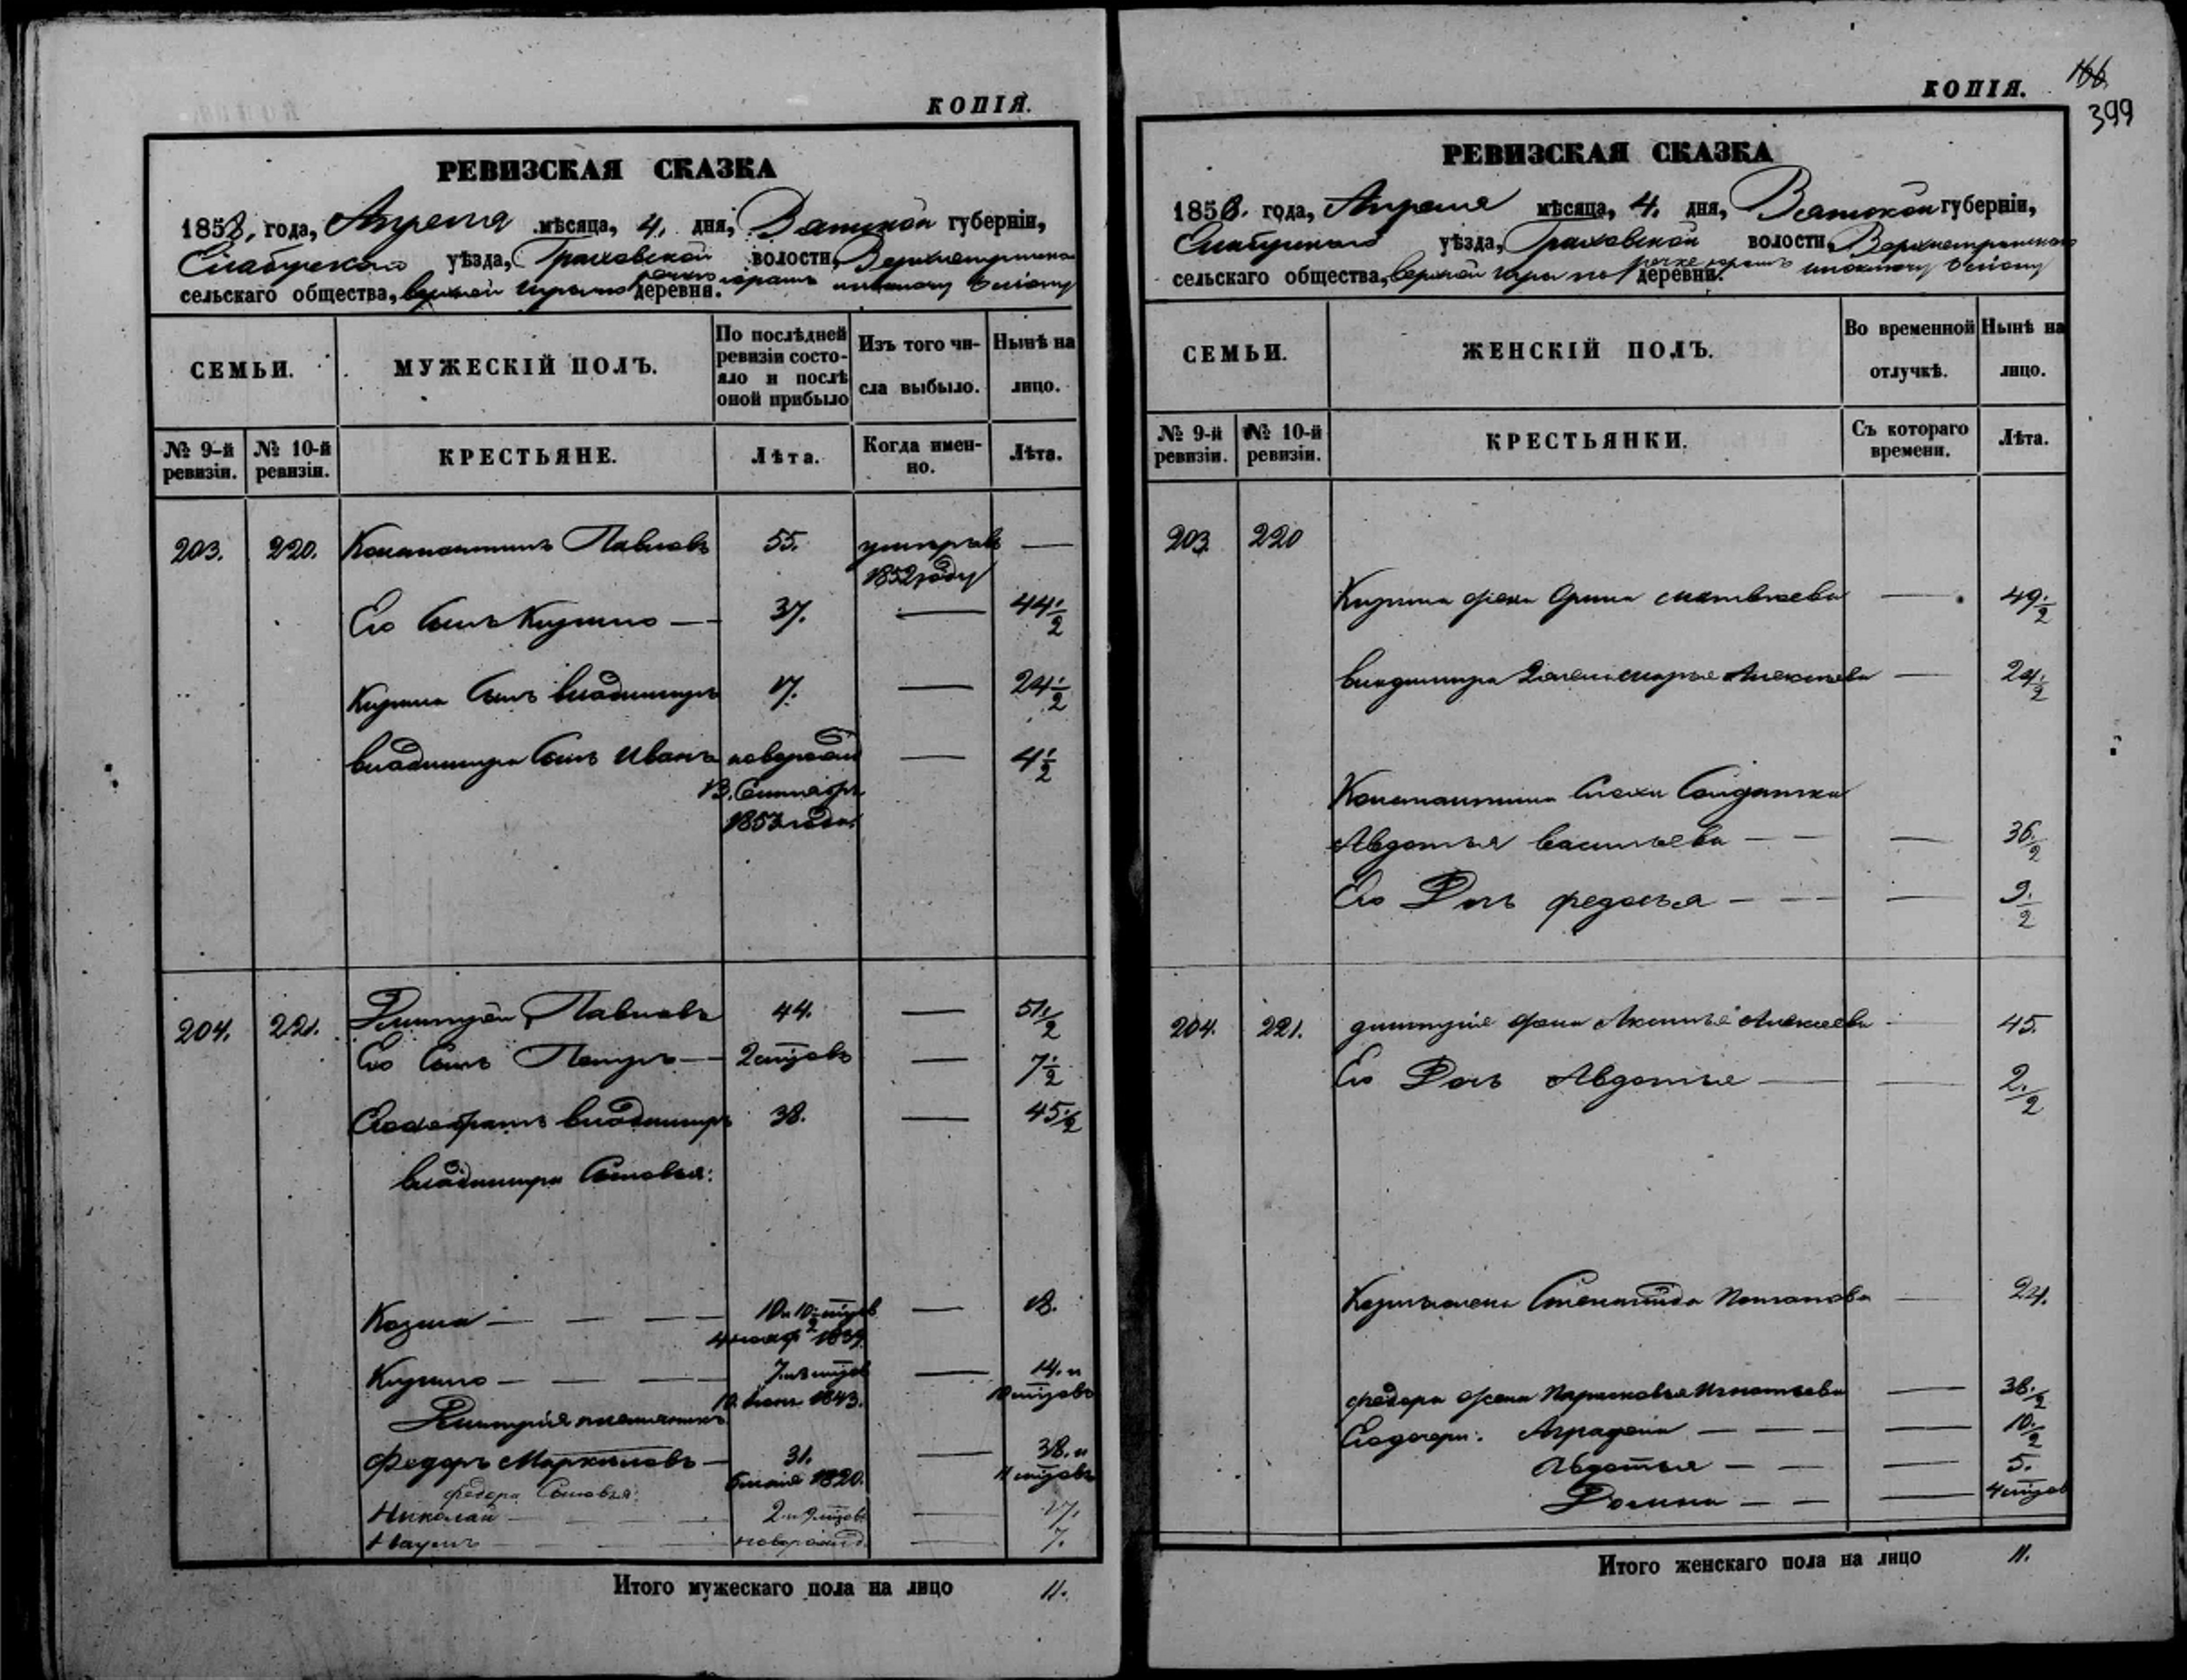 КОПІЯ.
РЕВИЗСКАЯ СКАЗКА
1858, года, Апреля мѣсяца, 4. дня, Вятской губерніи,
Елабужскаго уѣзда, Граховской волости,
сельскаго общества, верхней Игры по речке деревни.
СЕМЬИ.
МУЖЕСКІЙ ПОЛЪ.
По послѣдней ревизіи состо-
яло и послѣ оной прибыло
Изъ того чи-
сла выбыло.
Нынѣ на
лицо.
№ 9-й ревизіи.
№ 10-й ревизіи.
КРЕСТЬЯНЕ.
Лѣта.
Когда имен-
но.
Лѣта.
203. 220. Константинъ Павловъ 55. умеръ въ —
1852 году
Его Сынъ Кирило — 37. — 44 1/2
Кирила Сынъ Владимиръ 17. — 24 1/2
Владимира Сынъ Иванъ новорожд — 4 1/2
13. Сентябр
1853 года.
204. 221. Дмитрей Павловъ 44. — 51 1/2
Его Сынъ Петръ — — 7 1/2
Владимиръ 38. — 45 1/2
Владимира Сыновья:
Козма — — — — 18.
1839.
Кирило — — — — 14. и
1843.
Дмитрія племянникъ
Федоръ Маркиловъ — 31. — 38. и
6 мая 1820.
Федора Сыновья:
Николай — — — — 17.
Наумъ — — — новорожд. — 7.
Итого мужескаго пола на лицо 11.
КОПІЯ.
166
399
РЕВИЗСКАЯ СКАЗКА
1858. года, Апреля мѣсяца, 4. дня, Вятской губерніи,
Елабужскаго уѣзда, Граховской волости,
сельскаго общества, верхней Игры по речке деревни.
СЕМЬИ.
ЖЕНСКІЙ ПОЛЪ.
Во временной
отлучкѣ.
Нынѣ на
лицо.
№ 9-й ревизіи.
№ 10-й ревизіи.
КРЕСТЬЯНКИ.
Съ котораго времени.
Лѣта.
203 220
Кирила жена Орина Матвѣева — 49 1/2
Владимира Алексѣева — 24 1/2
Константина Сноха Солдатка
Авдотья Васильева — — — 36 1/2
Ея Дочь Федосья — — — — 9 1/2
204. 221. Дмитрія жена Аксинья Алексѣева — 45.
Его Дочь Авдотья — — 2 1/2
Степанида Потапова — 24.
Федора жена Парасковья Игнатьева — 38 1/2
Его дочери: Аграфена — — — — 10 1/2
Авдотья — — — 5.
Домна — — — 4
Итого женскаго пола на лицо 11.